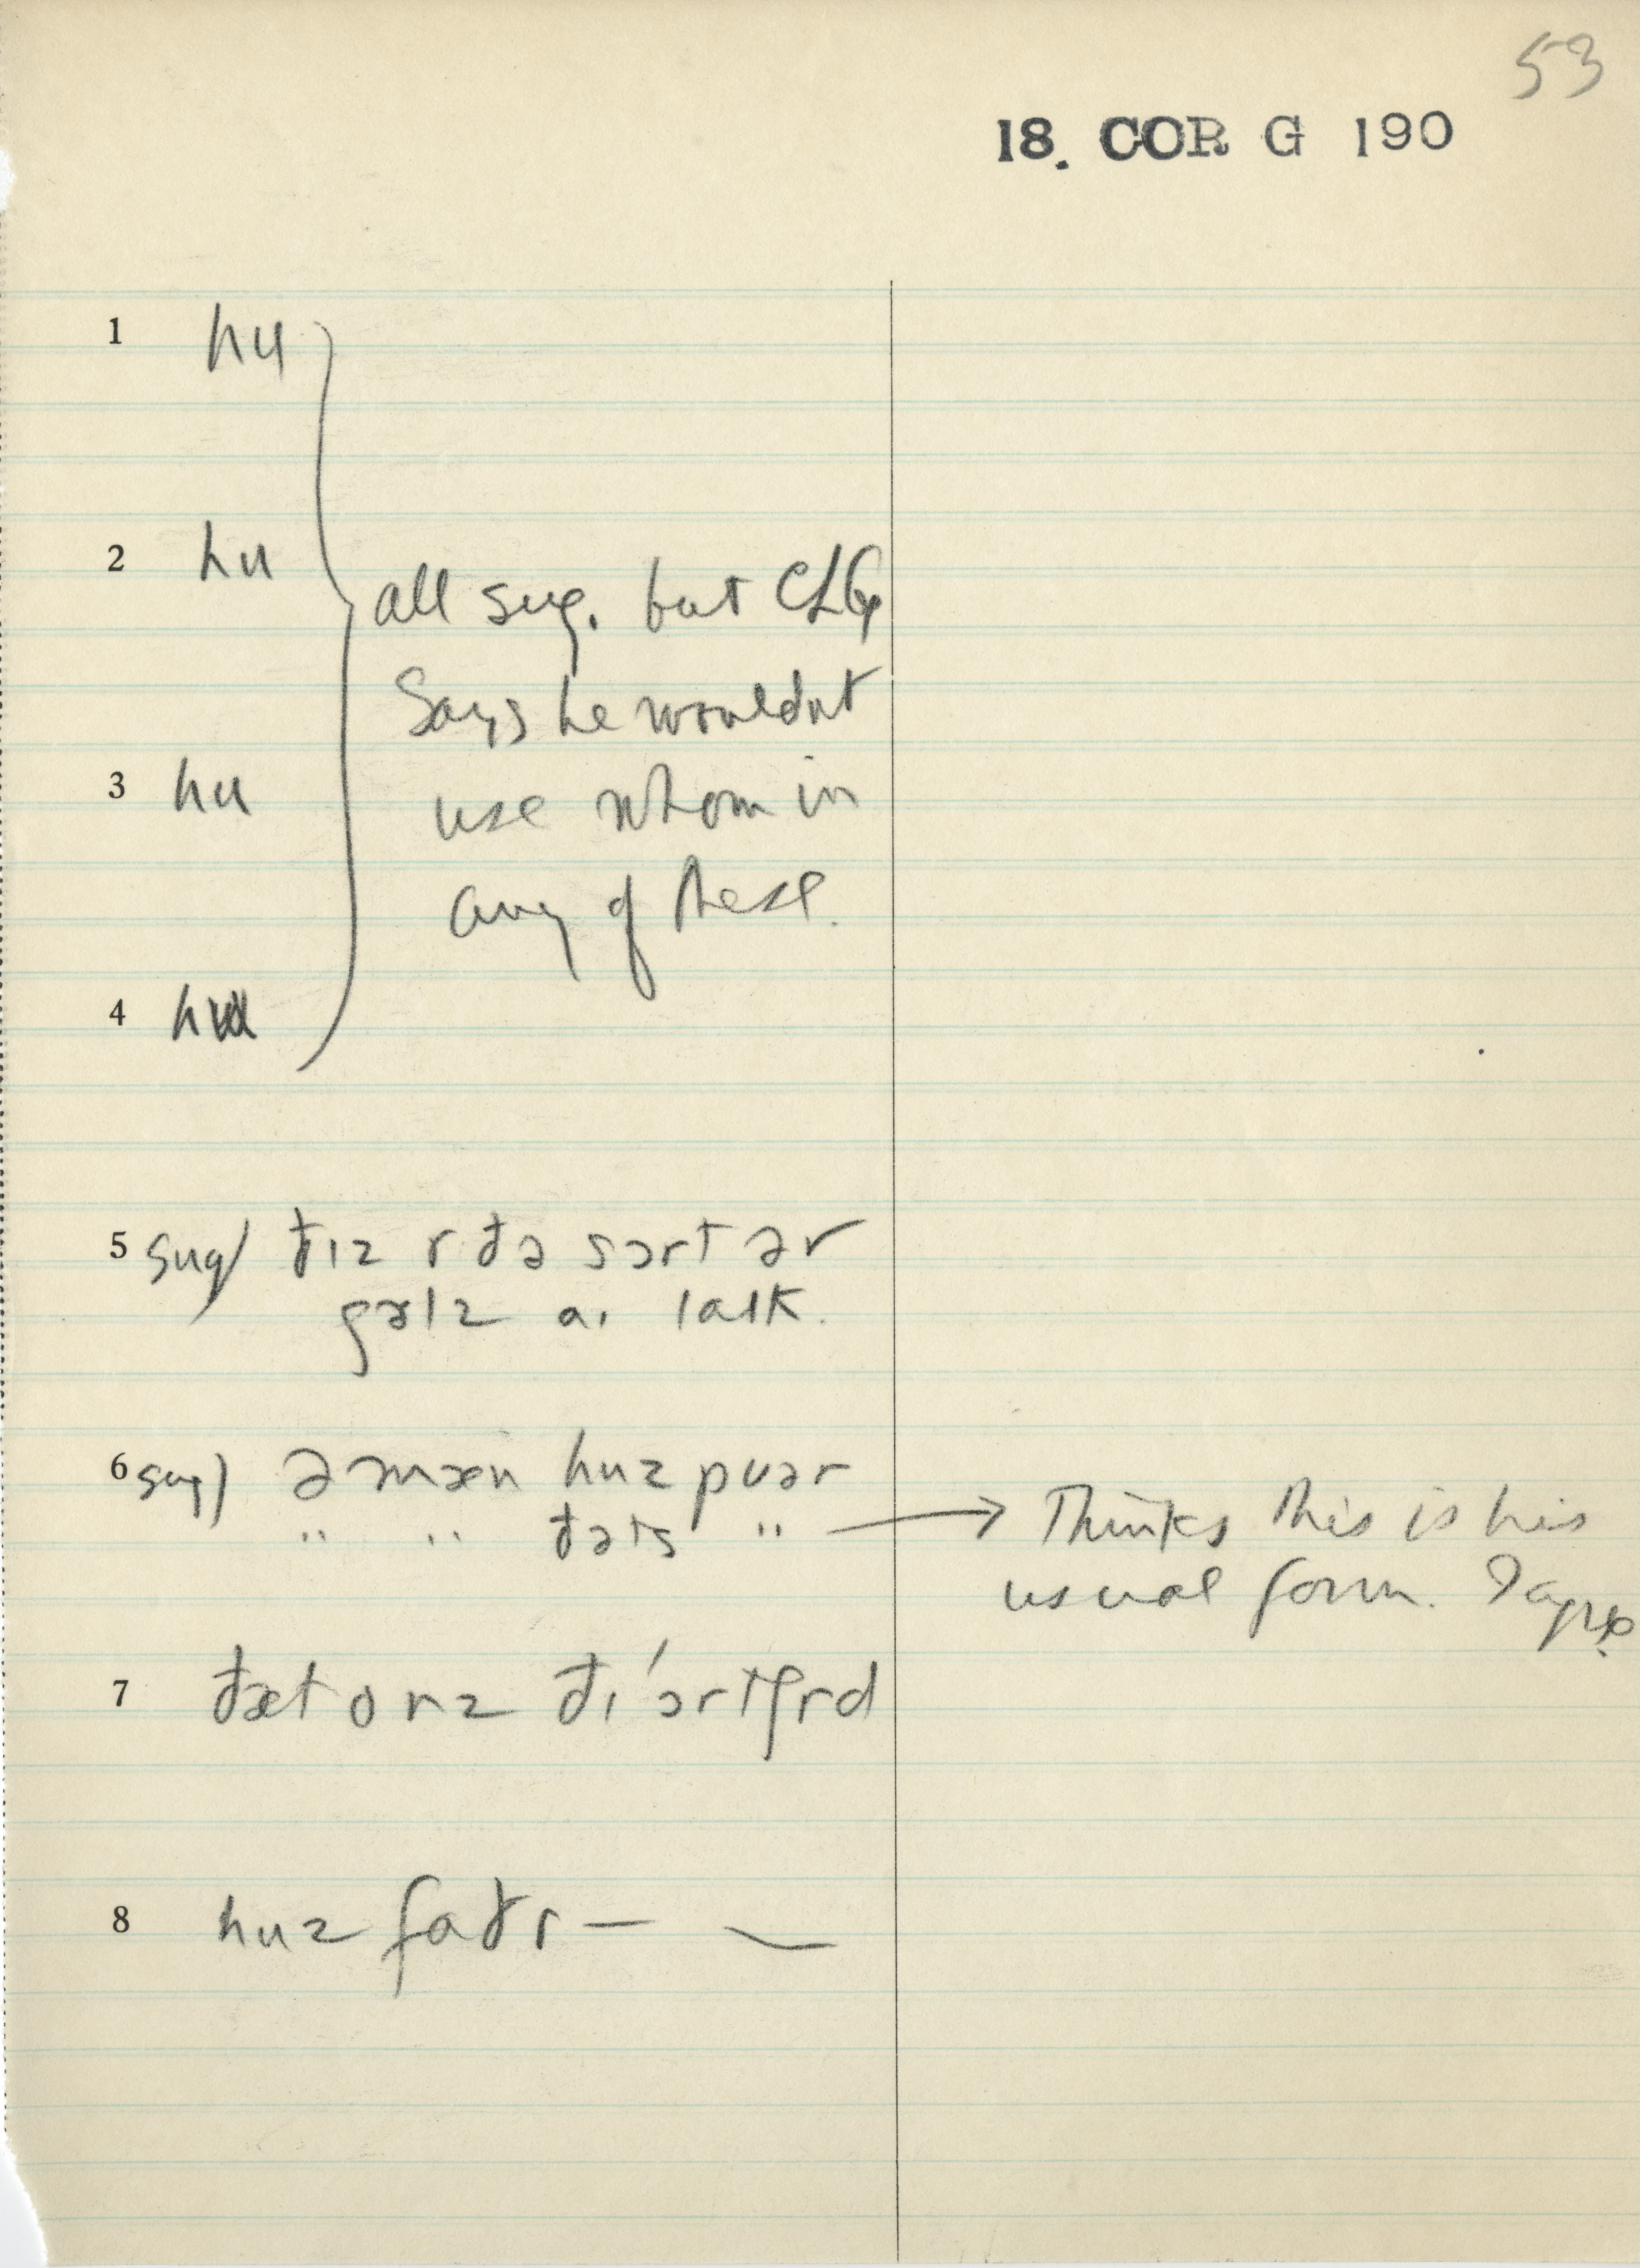 53
18. COR G 190
1 hu
2 hu
all sug. but CLG
Says he wouldnt
use whom in
any of these.
3 hu
4 hu
5 sug) đɪz r đə sɔrt ər
gəlz aɪ laɪk.
6 sug) ə mæn huz puər
" " đəts " → Thinks this is his
usual form. I agree
7 đæt onz đɪ 'ɔrtʃrd
8 huz fađr — —